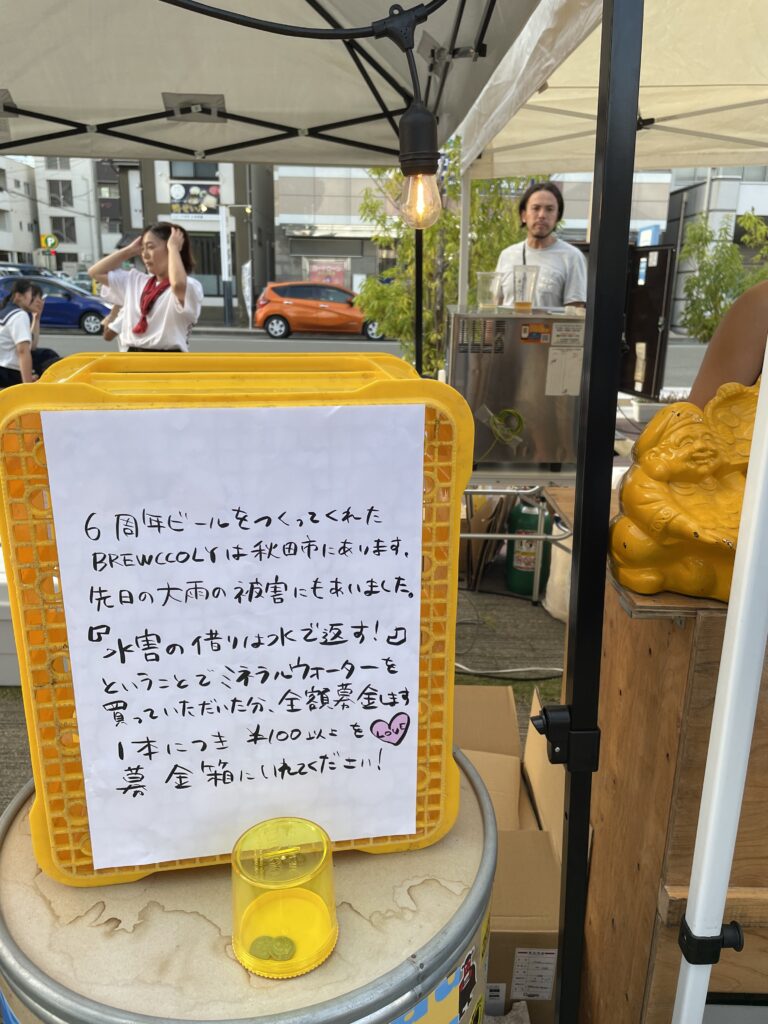 6周年ビールをつくってくれた
BREWCCOLYは秋田市にあります。
先日の大雨の被害にもあいました。
『水害の借りは水で返す!』
ということでミネラルウォーターを
買っていただいた分、全額募金します
1本につき ¥100以上を LOVE
募金箱にいれてください!